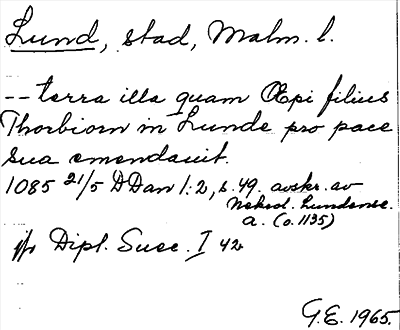 Lund, stad, Malm. l.
-- terra illa quam Øpi filius
Thorbiorn in Lunde pro pace
sua emendauit.
1085 21/5 DDan 1:2, s. 49. avskr. av
Nekrol. Lundense.
a. (o. 1135)
jfr Dipl. Suec. I 42
G.E. 1965.